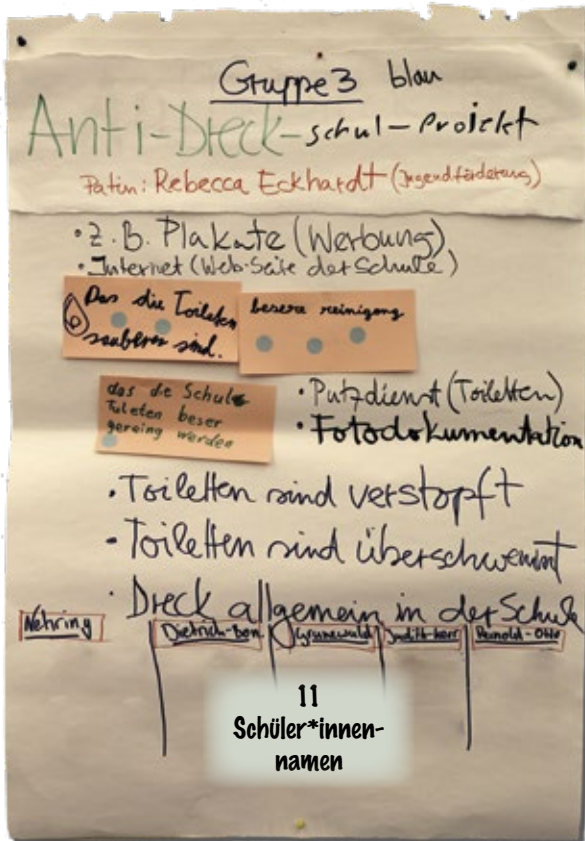 Gruppe 3 blau
Anti-Dreck-schul-Projekt
Patin: Rebecca Eckhardt (Jugendförderung)
• z.B. Plakate (Werbung)
• Internet (Web-Seite der Schule)
Das die Toileten
sauberer sind.
besere reinigung
das die Schul
Tuleten beser
gereing werden
• Putzdienst (Toiletten)
• Fotodokumentation
• Toiletten sind verstopft
• Toiletten sind überschwemmt
• Dreck allgemein in der Schule
Nehring
Dietrich-Bon.
Grunewald
Judith-Kerr
Reinold-Otto
11
Schüler*innen-
namen